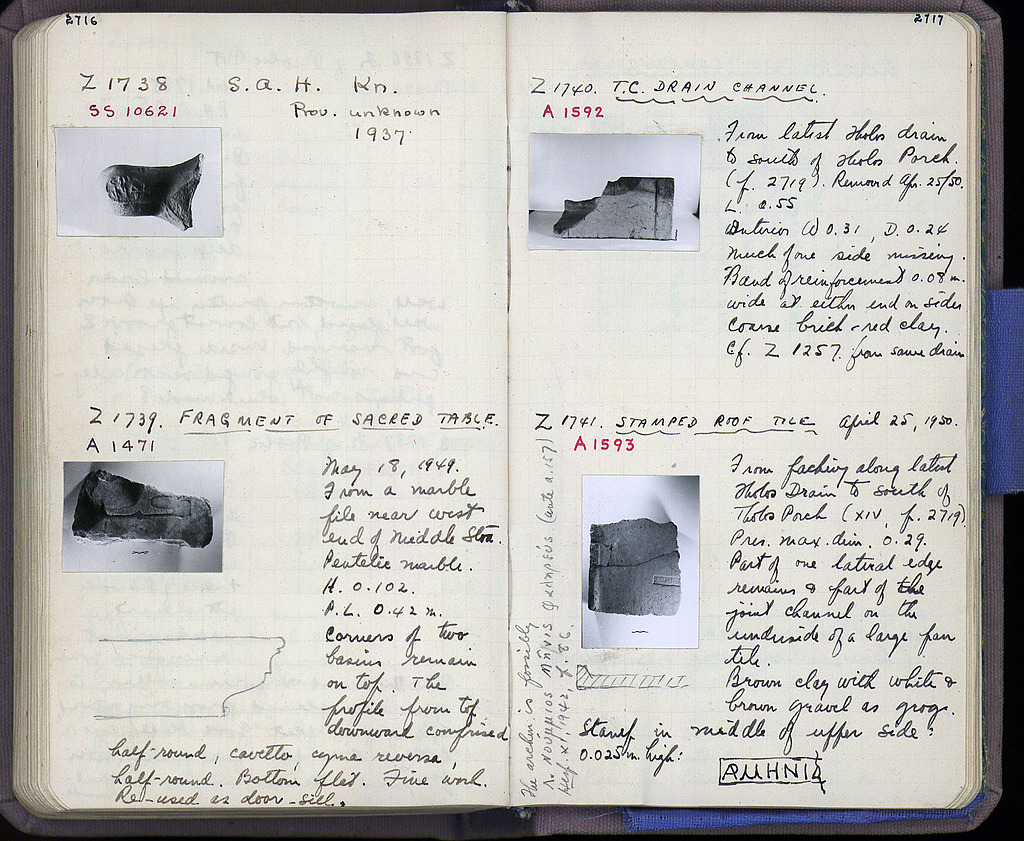 2716
Z 1738 S.A.H. Kn.
SS 10621
Prov. unknown
1937.
Z 1739. FRAGMENT OF SACRED TABLE.
A 1471
May 18, 1949.
From a marble
pile near west
end of Middle Stoa.
Pentelic marble.
H. 0.102.
P.L. 0.42 m.
Corners of two
basins remain
on top. The
profile from top
downward comprised
half-round, cavetto, cyma reversa,
half-round. Bottom flat. Fine work.
Re-used as door-sill.
2717
Z 1740. T.C. DRAIN CHANNEL.
A 1592
From latest Tholos drain
to south of Tholos Porch.
(p. 2719). Removed Apr. 25/50.
L. 0.55
Interior W 0.31, D. 0.24
Much of one side missing.
Band of reinforcement 0.08 m.
wide at either end on sides
Coarse brick-red clay.
Cf. Z 1257. from same drain
Z 1741. STAMPED ROOF TILE April 25, 1950.
A 1593
From packing along latest
Tholos Drain to south of
Tholos Porch (XIV, p. 2719)
Pres. max. dim. 0.29.
Part of one lateral edge
remains & part of the
joint channel on the
underside of a large pan
tile.
Brown clay with white &
brown gravel as grog.
Stamp in middle of upper side:
0.025 m. high:
The archon is possibly
Λ. Νούμμιος Μῆνις Φαληρεύς (ante a. 157)
Hesp. XI, 1942, p. 86.